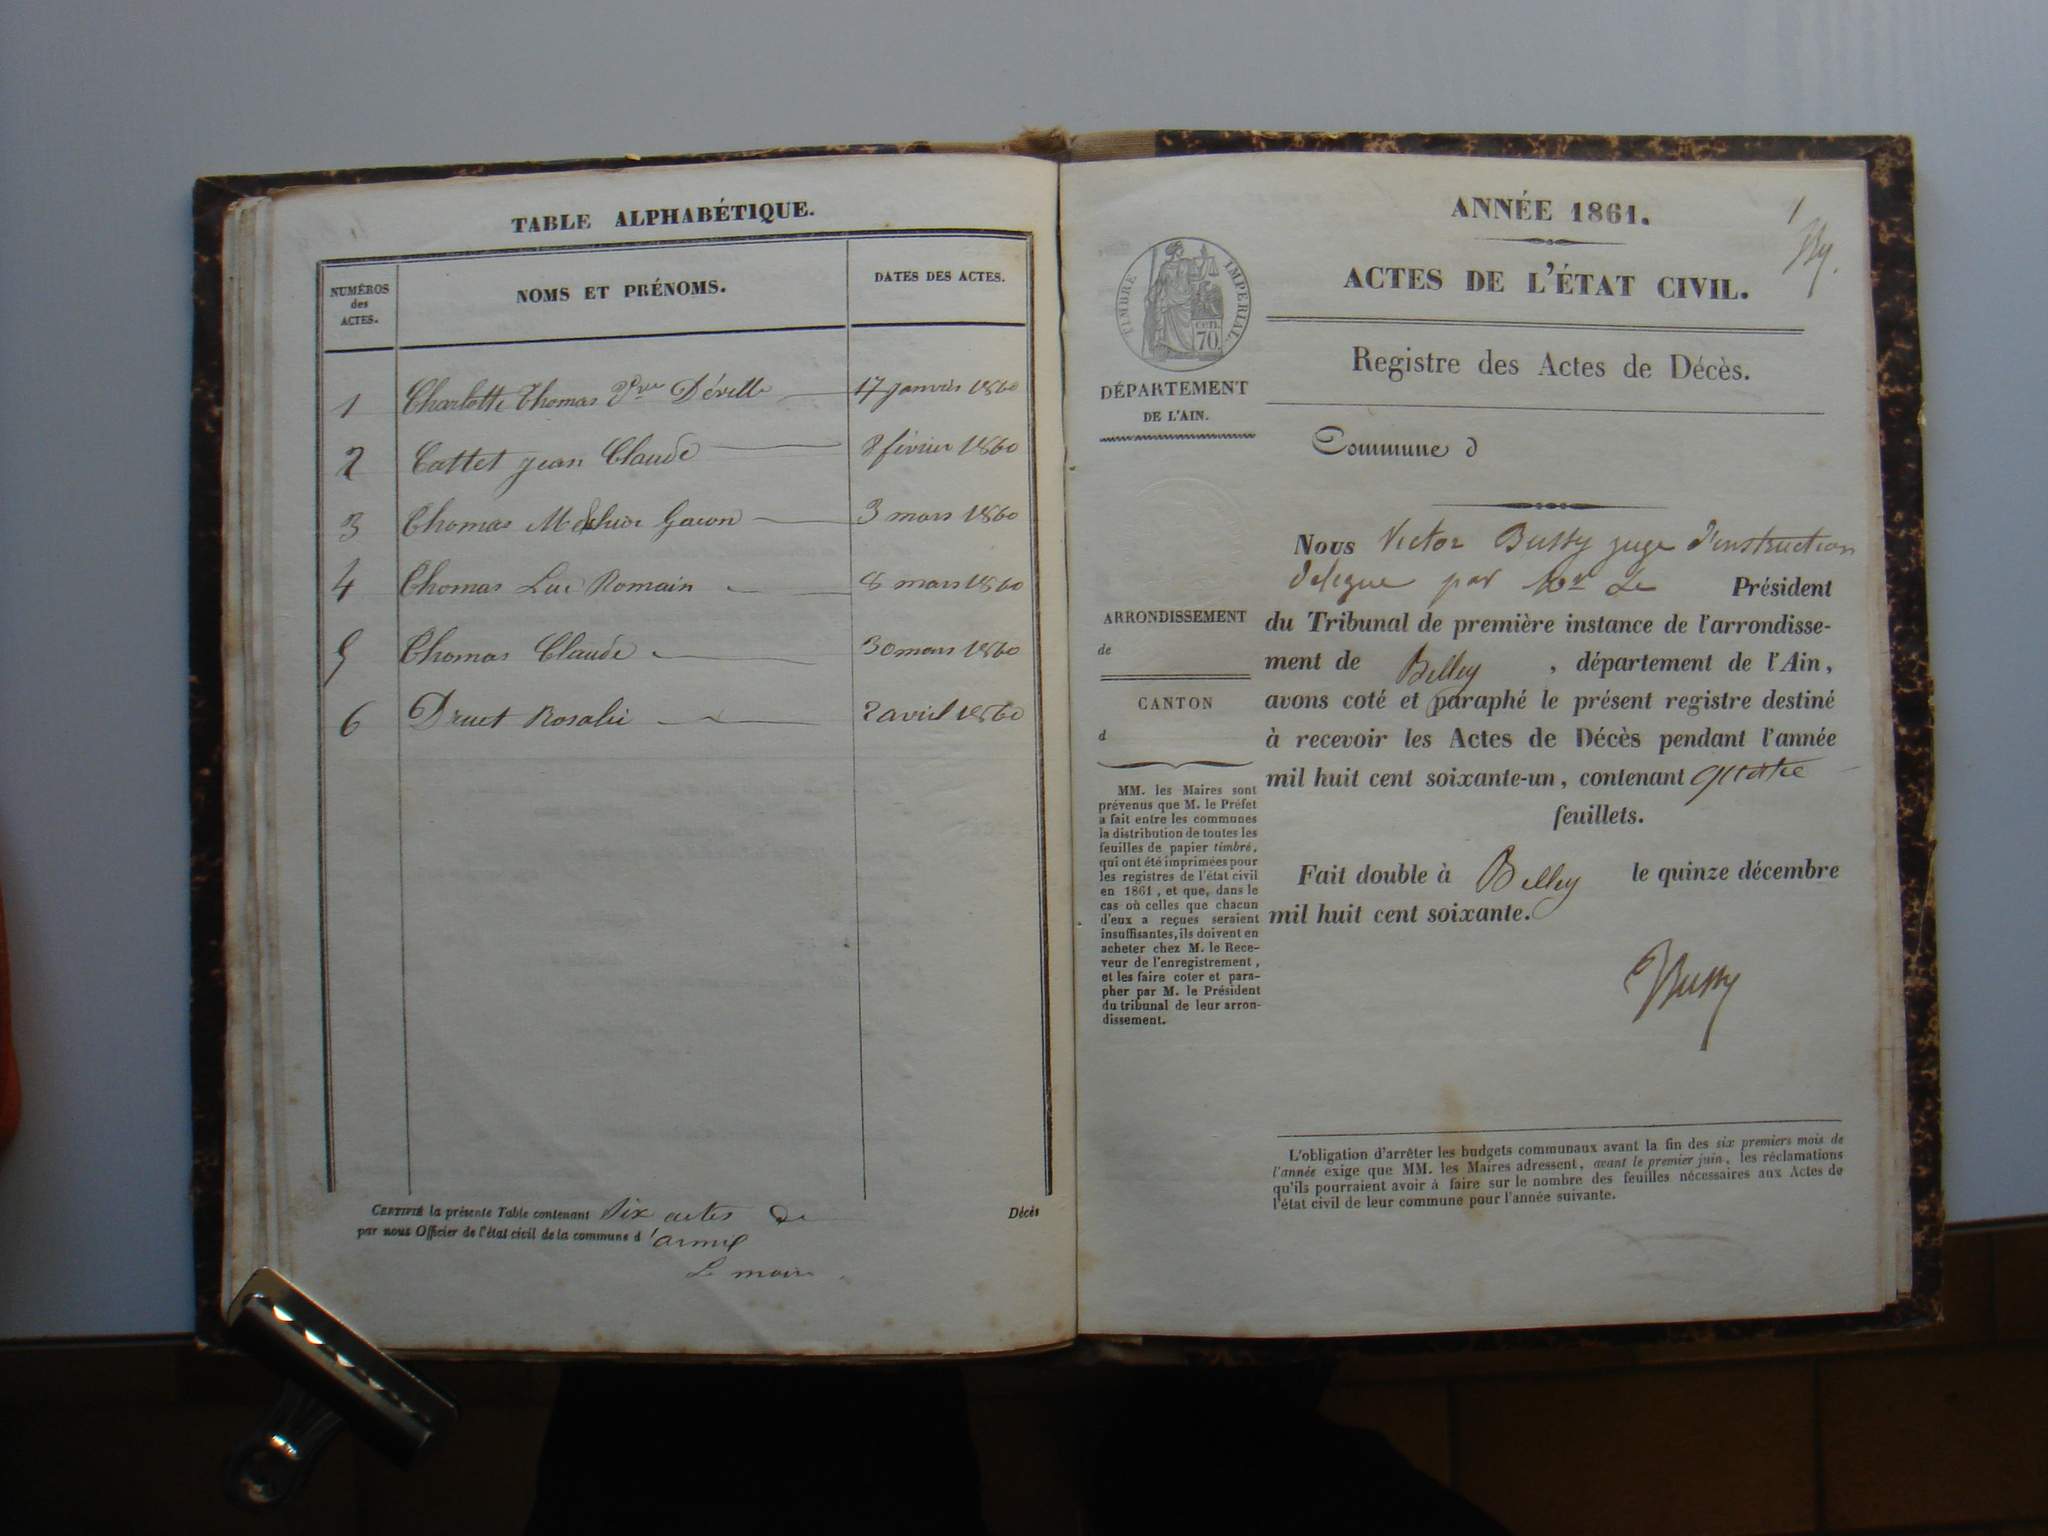 TABLE ALPHABÉTIQUE.
NUMÉROS
des
ACTES.
NOMS ET PRÉNOMS.
DATES DES ACTES.
1 Charlotte Thomas Vve Déville 17 janvier 1860
2 Cattet jean Claude 8 février 1860
3 Thomas Melchior Gacon 3 mars 1860
4 Thomas Luc Romain 8 mars 1860
5 Thomas Claude 30 mars 1860
6 Druet Rosalie 2 avril 1860
CERTIFIÉ la présente Table contenant Six actes de Décès
par nous Officier de l'état civil de la commune d'armix
Le maire
1
ANNÉE 1861.
ACTES DE L'ÉTAT CIVIL.
Registre des Actes de Décès.
Commune d
Nous Victor Bussy juge d'instruction
délégué par Mr Le Président
du Tribunal de première instance de l'arrondisse-
ment de Belley, département de l'Ain,
avons coté et paraphé le présent registre destiné
à recevoir les Actes de Décès pendant l'année
mil huit cent soixante-un, contenant quatre
feuillets.
Fait double à Belley le quinze décembre
mil huit cent soixante.
Bussy
L'obligation d'arrêter les budgets communaux avant la fin des six premiers mois de
l'année exige que MM. les Maires adressent, avant le premier juin, les réclamations
qu'ils pourraient avoir à faire sur le nombre des feuilles nécessaires aux Actes de
l'état civil de leur commune pour l'année suivante.
TIMBRE IMPERIAL
cen.
70.
DÉPARTEMENT
DE L'AIN.
ARRONDISSEMENT
de
CANTON
d
MM. les Maires sont
prévenus que M. le Préfet
a fait entre les communes
la distribution de toutes les
feuilles de papier timbré,
qui ont été imprimées pour
les registres de l'état civil
en 1861, et que, dans le
cas où celles que chacun
d'eux a reçues seraient
insuffisantes, ils doivent en
acheter chez M. le Rece-
veur de l'enregistrement,
et les faire coter et para-
pher par M. le Président
du tribunal de leur arron-
dissement.